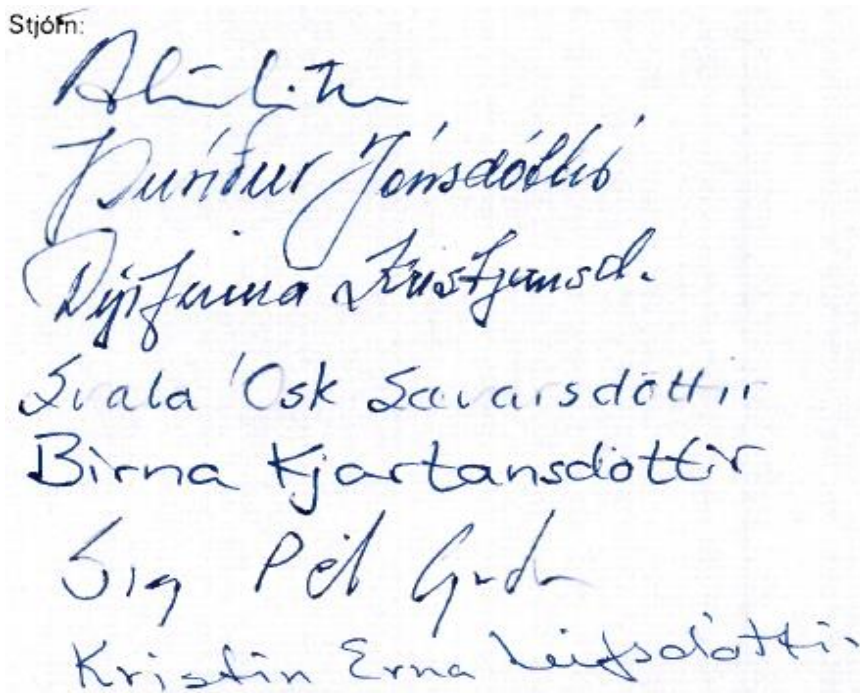 Stjórn:
Þuríður Jónsdóttir
Dýrfinna Kristjánsd.
Svala Ósk Sævarsdóttir
Birna Kjartansdóttir
Sig Pál
Kristín Erna Leifsdóttir